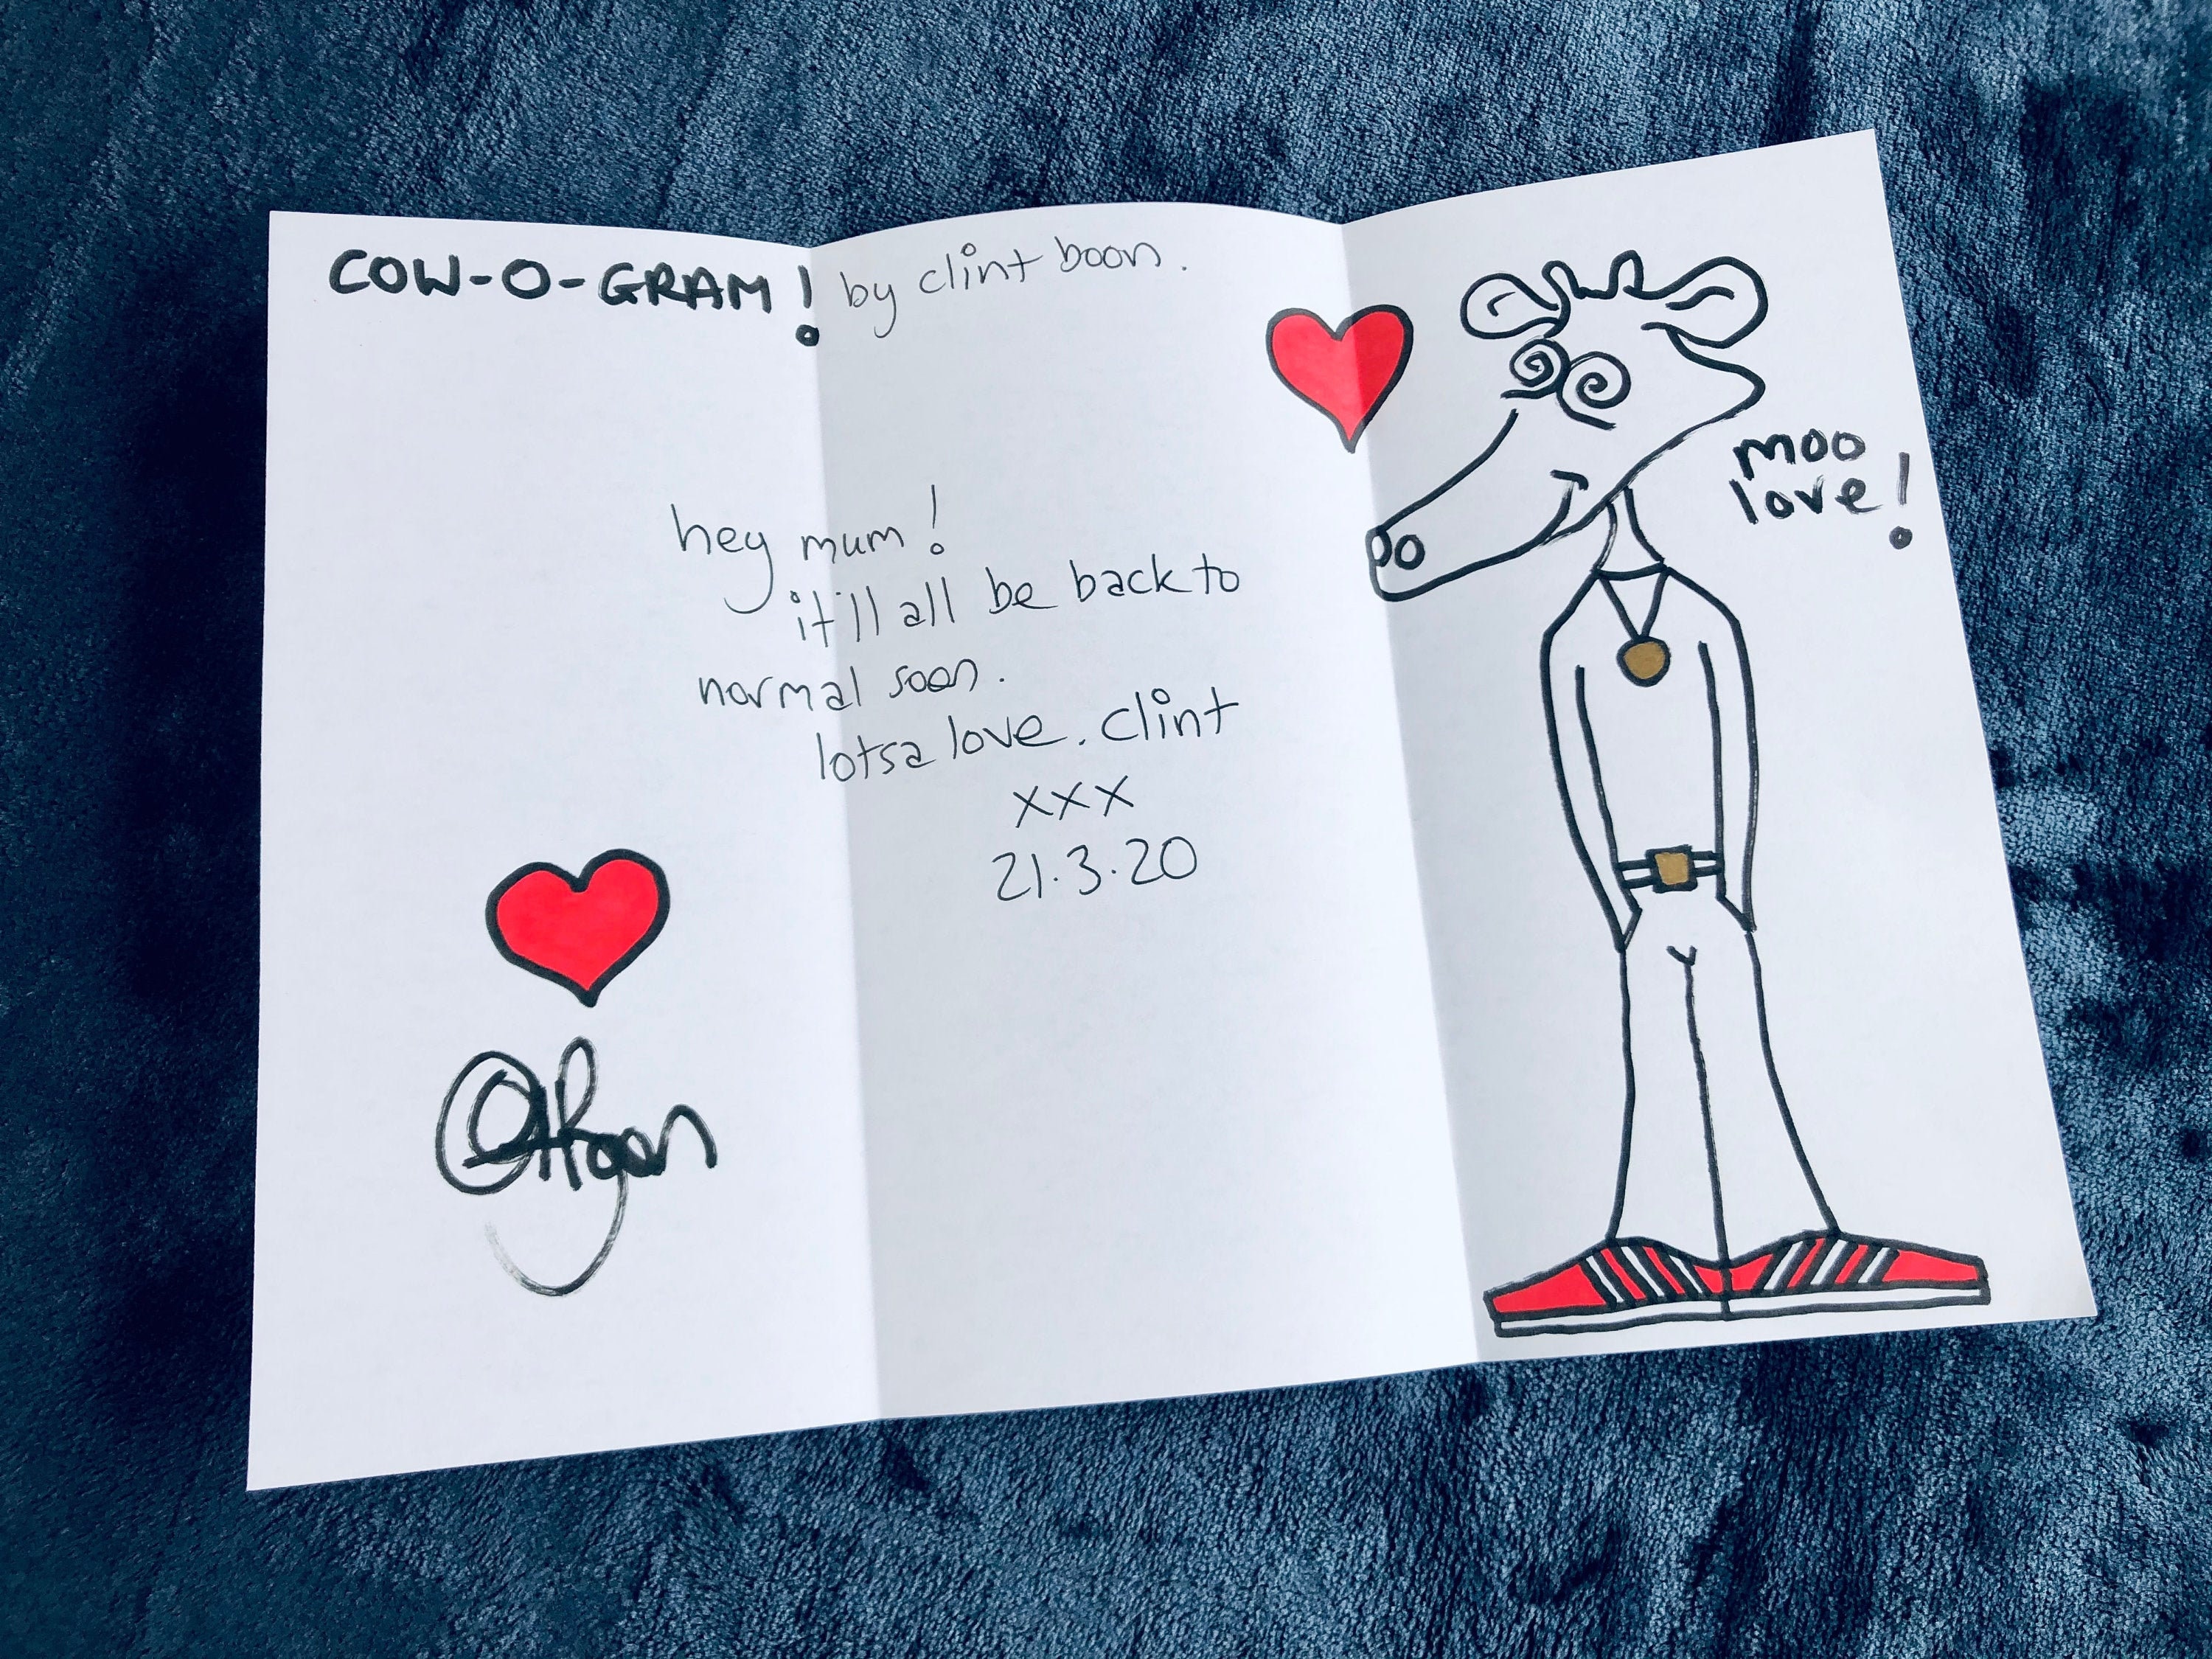 COW-O-GRAM! by clint boon.
hey mum!
it'll all be back to
normal soon.
lotsa love. clint
xxx
21.3.20
moo
love!